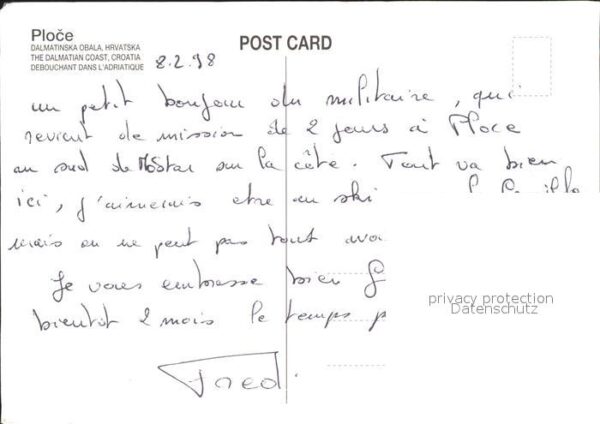 Ploče
DALMATINSKA OBALA, HRVATSKA
THE DALMATIAN COAST, CROATIA
DEBOUCHANT DANS L'ADRIATIQUE
POST CARD
8.2.98
un petit bonjour du militaire, qui
revient de mission de 2 jours à Ploce
au sud de Mostar sur la côte. Tout va bien
ici, j'aimerais etre au ski
mais on ne peut pas tout
Je vous embrasse bien
bientôt 2 mois le temps
Fred.
privacy protection
Datenschutz